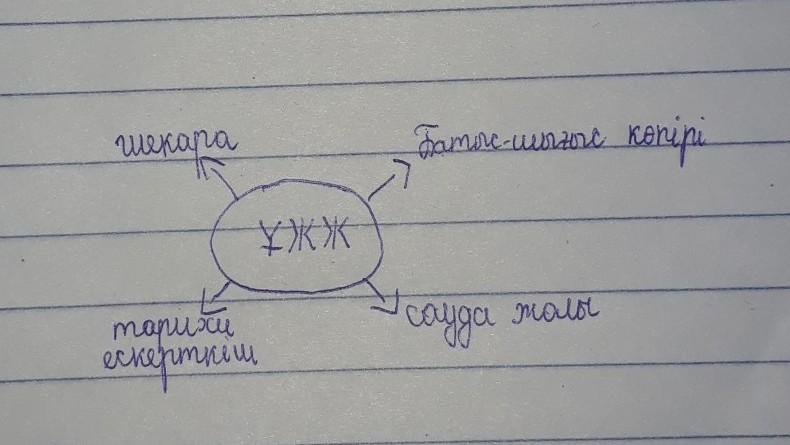 шекара
Батыс-шығыс көпірі
ҰЖЖ
тарихи
ескерткіш
сауда жолы